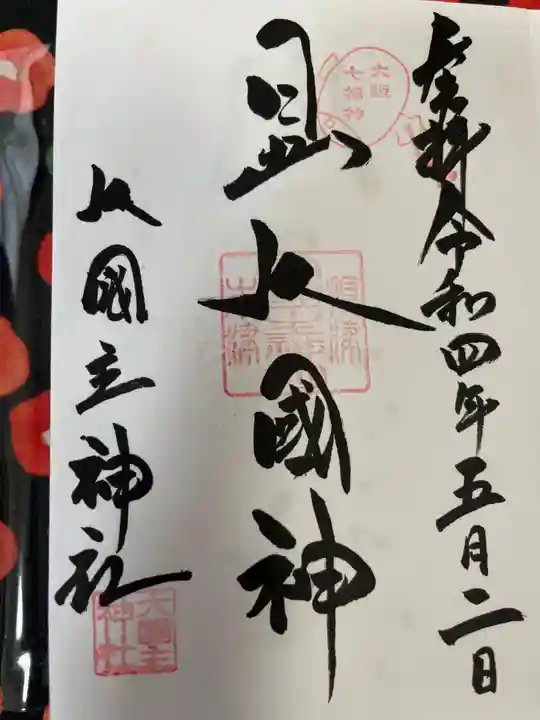 奉拝 令和四年五月二日
大阪
七福神
日出大國神
大國主神社
大國主
神社